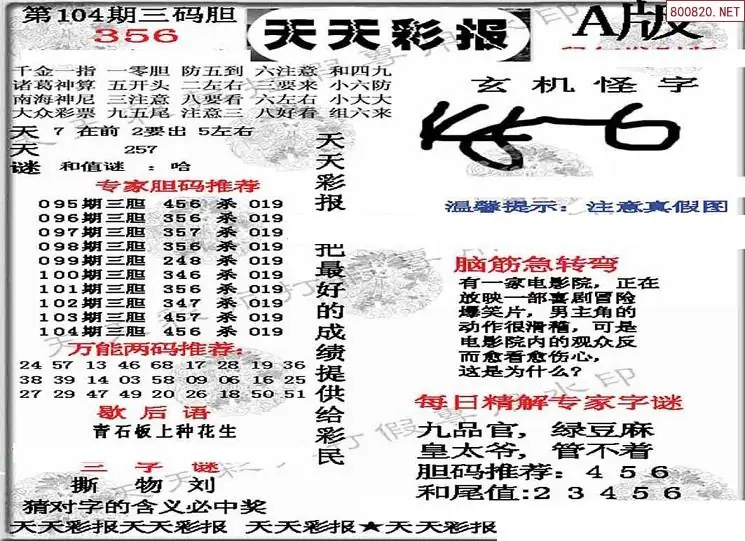 第104期三码胆
356
天天彩报
A版
800820.NET
千金一指 一零胆 防五到 六注意 和四九
诸葛神算 五开头 二左右 三要来 小六防
南海神尼 三注意 八要看 六左右 小大大
大众彩票 九五尾 注意三 八好看 组六来
天 7 在前 2要出 5左右
天 257
谜 和值谜 :哈
专家胆码推荐
095期三胆 456 杀 019
096期三胆 356 杀 019
097期三胆 357 杀 019
098期三胆 356 杀 019
099期三胆 248 杀 019
100期三胆 346 杀 019
101期三胆 356 杀 019
102期三胆 347 杀 019
103期三胆 457 杀 019
104期三胆 456 杀 019
万能两码推荐:
24 57 13 46 68 17 28 19 36
38 39 14 03 58 09 06 16 25
27 29 47 49 20 26 18 50 51
歇后语
青石板上种花生
三子谜
撕 物 刘
猜对字的含义必中奖
天天彩报
把最好的成绩提供给彩民
玄机怪字
温馨提示:注意真假图
脑筋急转弯
有一家电影院,正在
放映一部喜剧冒险
爆笑片,男主角的
动作很滑稽,可是
电影院内的观众反
而愈看愈伤心,
这是为什么?
每日精解专家字谜
九品官,绿豆麻
皇太爷,管不着
胆码推荐:456
和尾值:23456
天天彩报天天彩报 天天彩报★天天彩报